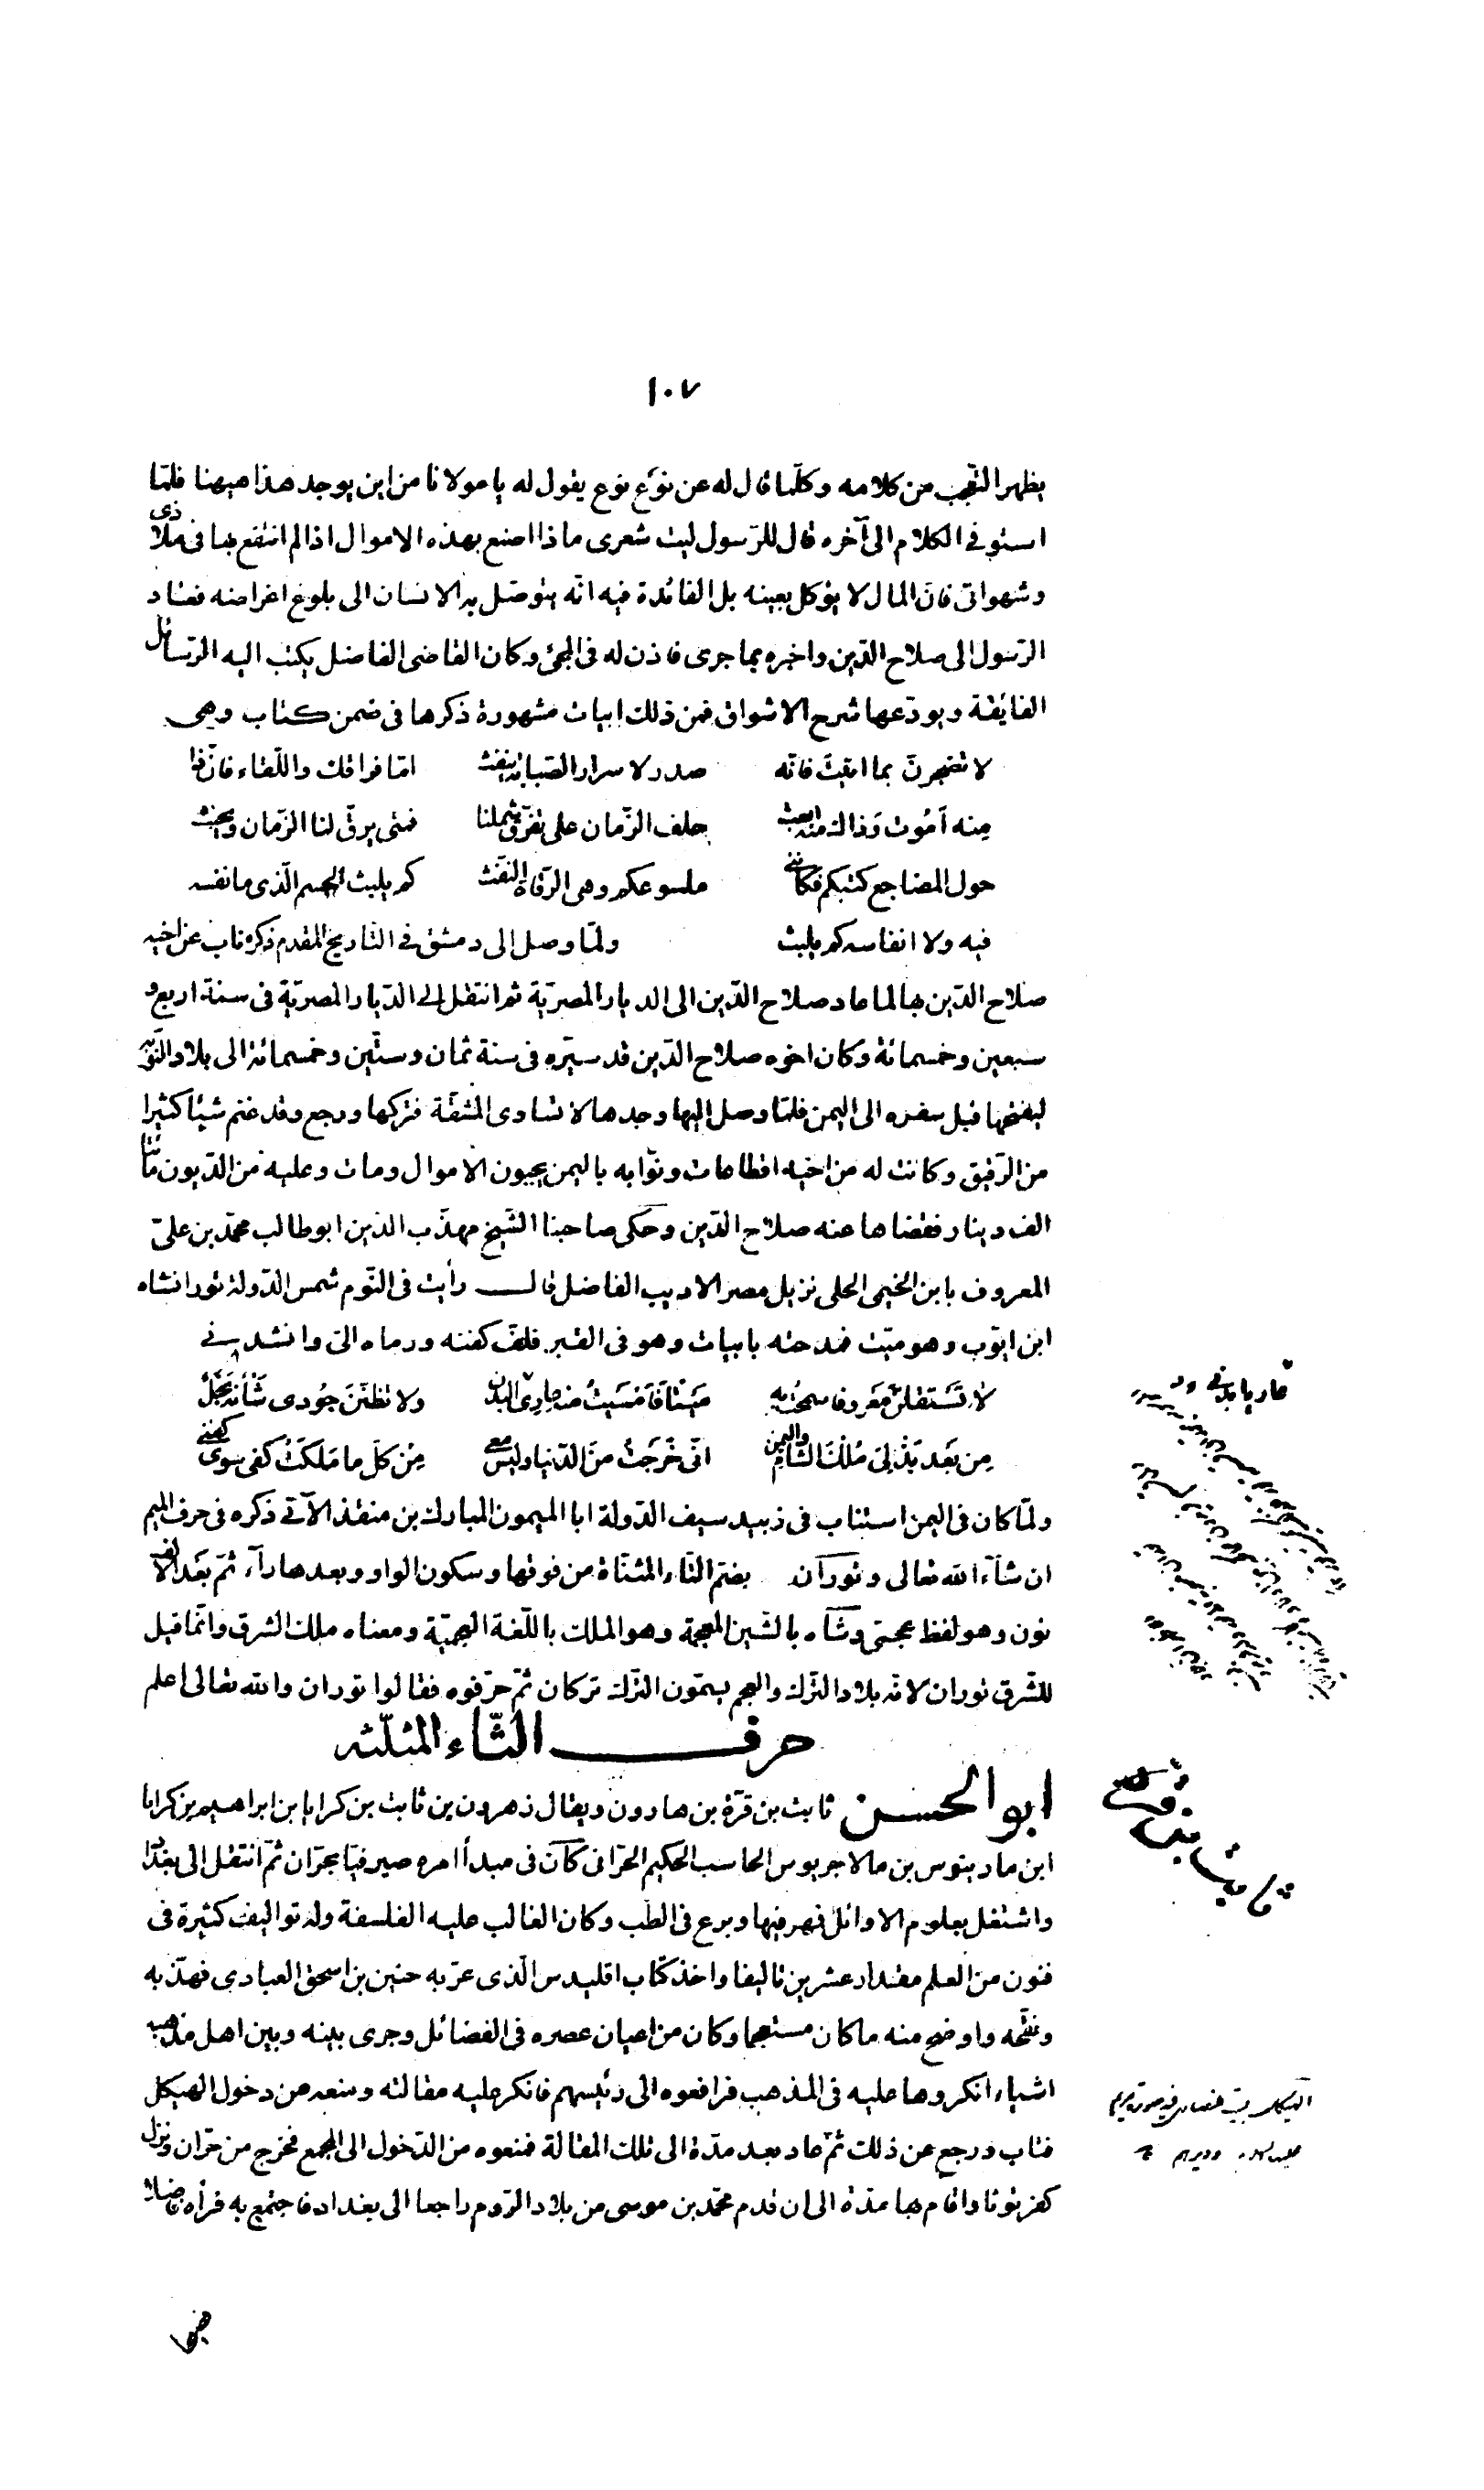 ١٠٧
يظهر التعجب من كلامه وكلما قال له عن نوع نوع يقول له يا مولانا من اين يوجد هذا هيهنا فلما
استوفى الكلام الى آخره قال للرسول ليت شعرى ماذا اصنع بهذه الاموال اذا لم انتفع بها فى ملاذى
وشهواتى فان المال لا يؤكل بعينه بل الفائدة فيه انه يتوصل به الانسان الى بلوغ اغراضه فعاد
الرسول الى صلاح الدين واخبره بما جرى فاذن له فى المجئ وكان القاضى الفاضل يكتب اليه الرسائل
الفايقة ويودعها شرح الاشواق فمن ذلك ابيات مشهورة ذكرها فى ضمن كتاب وهى
لا تضجرن بما اتيت فانه صدر لاسرار الصبابة ينفث اما فراقك واللقاء فان ذا
منه اموت وذاك منه ابعث حلف الزمان على تفرق شملنا فمتى يرق لنا الزمان ويحنث
حول المضاجع كتبكم فكاننى ملسوعكم وهى الرقاة النفث كم يلبث الجسم الذى ما نفسه
فيه ولا انفاسه كم يلبث ولما وصل الى دمشق فى التاريخ المقدم ذكره ناب عن اخيه
صلاح الدين بها لما عاد صلاح الدين الى الديار المصرية ثم انتقل الى الديار المصرية فى سنة اربع و
سبعين وخمسمائة وكان اخوه صلاح الدين قد سيره فى سنة ثمان وستين وخمسمائة الى بلاد النوبة
ليفتحها قبل سفره الى اليمن فلما وصل اليها وجدها لا تساوى المشقة فتركها ورجع وقد غنم شيئا كثيرا
من الرقيق وكانت له من اخيه اقطاعات ونوابه باليمن يجبون الاموال ومات وعليه من الديون مأتا
الف دينار فقضاها عنه صلاح الدين وحكى صاحبنا الشيخ مهذب الدين ابو طالب محمد بن على
المعروف بابن الخيمى الحلى نزيل مصر الاديب الفاضل قال رأيت فى النوم شمس الدولة تورانشاه
ابن ايوب وهو ميت فمدحته بابيات وهو فى القبر فلف كفنه ورماه الى وانشدنى
لا تستقلن معروفا سمحت به ميتا فامسيت منه عارى البدن ولا تظنن جودى شانه بخل
من بعد بذلى ملك الشام واليمن انى خرجت من الدنيا وليس معى من كل ما ملكت كفى سوى كفنى
ولما كان فى اليمن استناب فى زبيد سيف الدولة ابا الميمون المبارك بن منقذ الآتى ذكره فى حرف الميم
ان شآء الله تعالى وتوران بضم التاء المثناة من فوقها وسكون الواو وبعدها رآء ثم بعد الالف
نون وهو لفظ عجمى وشاه بالشين المعجمة وهو الملك باللغة العجمية ومعناه ملك الشرق وانما قيل
للشرق توران لانه بلاد الترك والعجم يسمون الترك تركان ثم حرفوه فقالوا توران والله تعالى اعلم
حرف الثاء المثلثه
ابو الحسن ثابت بن قرة بن هارون ويقال زهرون بن ثابت بن كرايا بن ابراهيم بن كرايا
ابن مارينوس بن مالاجريوس الحاسب الحكيم الحرانى كان فى مبدأ امره صيرفيا بحران ثم انتقل الى بغداد
واشتغل بعلوم الاوائل فمهر فيها وبرع فى الطب وكان الغالب عليه الفلسفة وله تواليف كثيرة فى
فنون من العلم مقدار عشرين تاليفا واخذ كتاب اقليدس الذى عربه حنين بن اسحق العبادى فهذبه
ونقحه واوضح منه ما كان مستعجما وكان من اعيان عصره فى الفضائل وجرى بينه وبين اهل مذهبه
اشياء انكروها عليه فى المذهب فرافعوه الى رئيسهم فانكر عليه مقالته ومنعه من دخول الهيكل
فتاب ورجع عن ذلك ثم عاد بعد مدة الى تلك المقالة فمنعوه من الدخول الى المجمع فخرج من حران ونزل
كفرتوثا واقام بها مدة الى ان قدم محمد بن موسى من بلاد الروم راجعا الى بغداد فاجتمع به فرأه فاضلا
ثابت بن قره